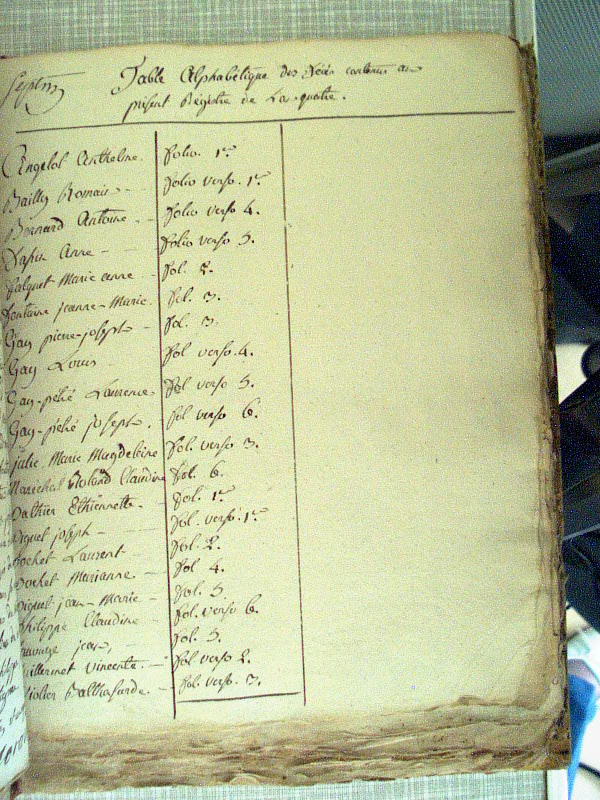 Septm
Table Alphabétique des Décès contenus au
présent Régistre de La quatre.
Angelot Anthelme. folio. 1er.
Bailly Romain folio verso. 1er.
Bernard Antoine folio verso 4.
Anne folio verso 5.
Falquet Marie anne fol. 2.
Fontaine jeanne-Marie. fol. 3.
Gay pierre-joseph fol. 3.
Gay Louis fol verso. 4.
Gay-péhé Laurence fol verso 5.
Gay-péhé joseph. fol verso 6.
julie Marie Magdeleine fol. verso 3.
Maréchal Roland Claudine fol. 6.
Ethiennette. fol. 1er
joseph fol. verso. 1er
Rochet Laurent fol. 2.
Rochet Marianne fol. 4.
jean-Marie fol. 5.
philippe Claudine fol. verso 6.
jean, fol. 5.
Vincente. fol verso 2.
Balthasarde. fol. verso. 3.